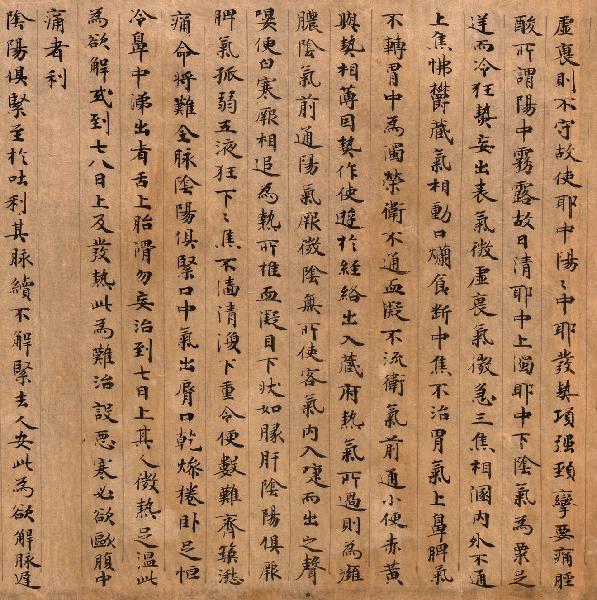 虛裏則不守故使耶中陽〻中耶發熱項强頚攣要痛脛
酸所謂陽中霧露故曰清耶中上濁耶中下陰氣為栗足
逆而冷狂熱妄出表氣微虛裏氣微急三焦相溷内外不通
上焦怫欝蔵氣相動口爛食断中焦不治胃氣上鼻脾氣
不轉胃中為濁榮衛不通血凝不流衛氣前通小便赤黄
與熱相薄因熱作使遊於経絡出入蔵府熱氣所過則為癰
膿陰氣前通陽氣厥微陰無所使客氣内入嚏而出之聲
嗢便白寒厥相追為熱所推血凝自下狀如豚肝陰陽俱厥
脾氣孤弱五液狂下〻焦不闔清溲下重令便數難齊築湫
痛命将難全脉陰陽俱緊口中氣出脣口乾燥捲卧足恒
冷鼻中涕出者舌上胎滑勿妄治到七日上其人微熱足温此
為欲解或到七八日上反發熱此為難治設惡寒必欲歐腹中
痛者利
陰陽俱緊至於吐利其脉續不解緊去人安此為欲解脉遲